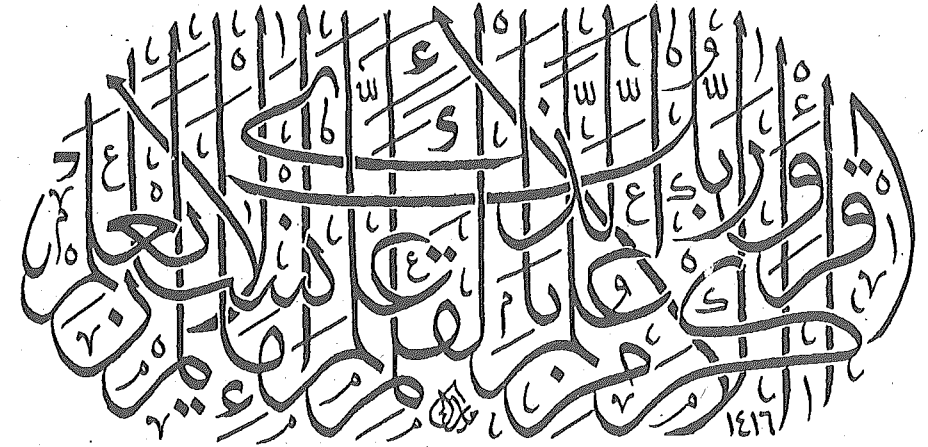 اقرأ وربك الأكرم الذي علم بالقلم علم الإنسان ما لم يعلم
١٤١٦